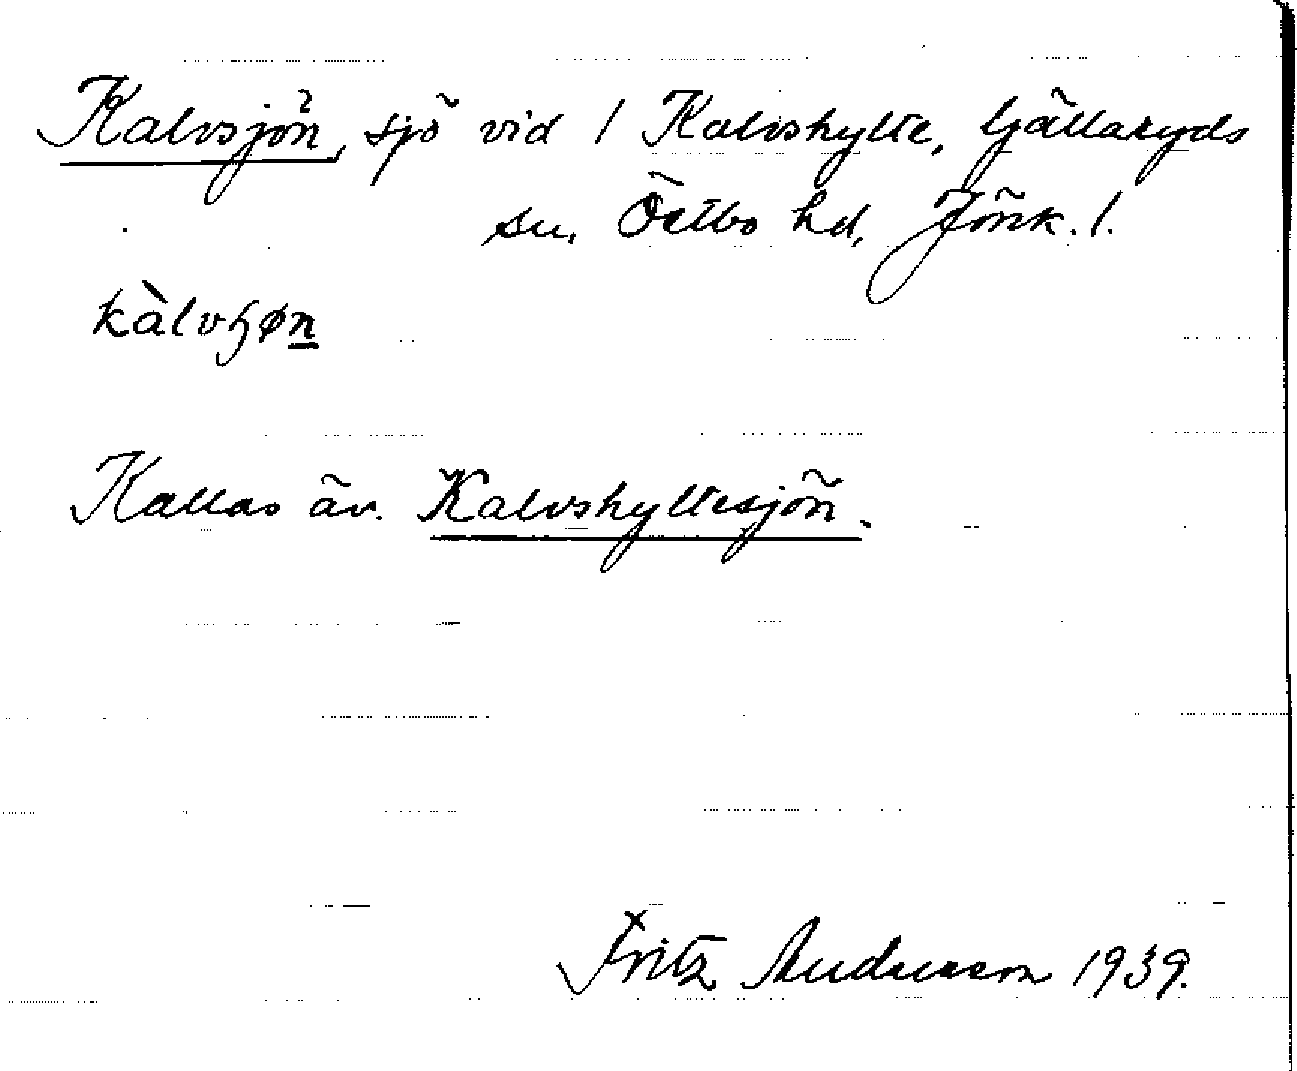 Kalvsjön, sjö vid 1 Kalvshylte, Gällaryds
sn. Östbo hd, Jönk. l.
kàlvɧøn
Kallas äv. Kalvshyltesjön.
Fritz Andersson 1939.